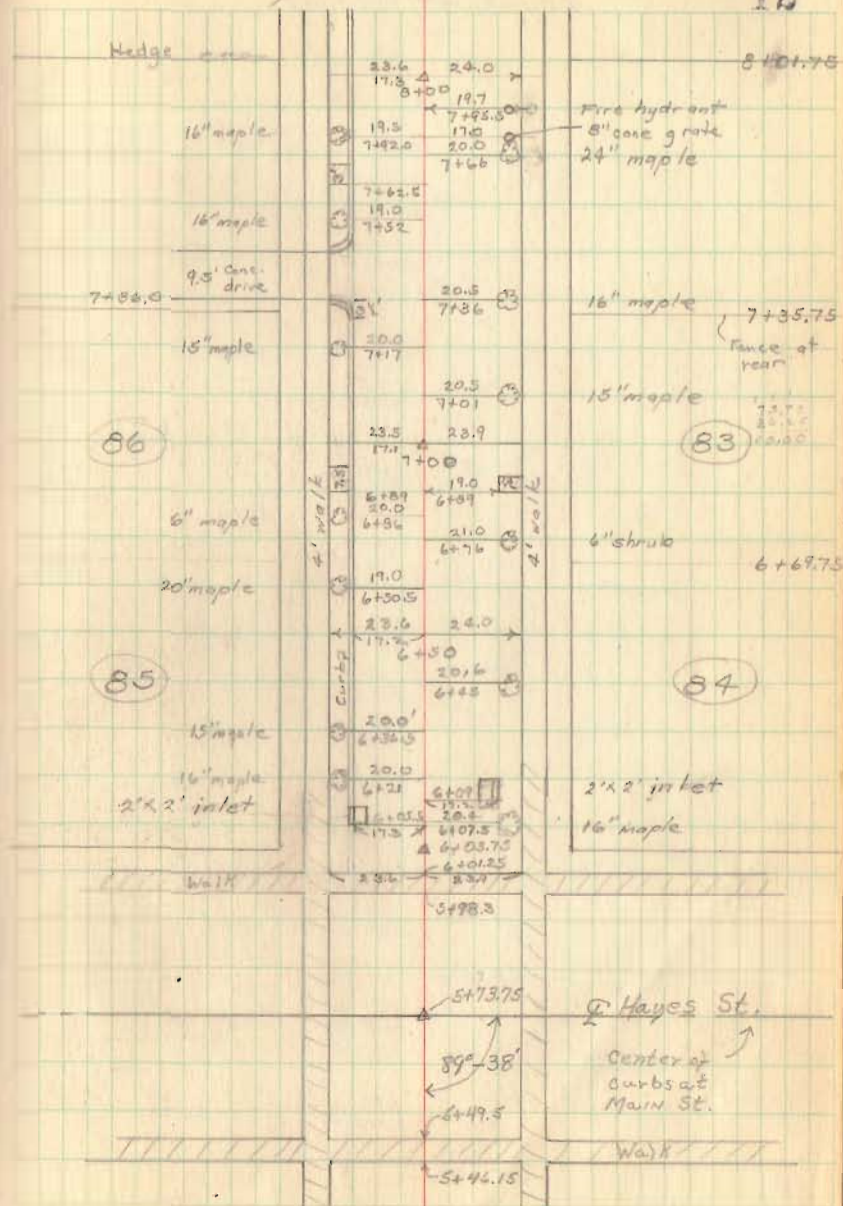 Hedge
23.6 24.0
8+01.75
17.3
8+00
19.7
7+95.5
Fire hydrant
16" maple
19.5
7+92.0
17.0
8" conc grate
20.0
7+66
24" maple
7+62.5
16" maple
19.0
7+52
9.5' Conc.
drive
7+86.0
20.5
7+36
16" maple
7+35.75
Fence at
rear
15" maple
20.0
7+17
20.5
7+01
15" maple
86
23.5 23.9
83
17.1
7+00
4' walk
6+89
19.0
6+89
4' walk
6" maple
20.0
6+86
21.0
6+76
6" shrub
6+69.75
20" maple
19.0
6+50.5
23.6 24.0
17.2
6+50
85
Curb
20.6
6+45
84
15" maple
20.0'
6+36.5
16" maple
20.0
6+21
6+09
2'x2' inlet
2'x2' inlet
6+05.5
17.3
20.4
6+07.5
16" maple
6+03.75
6+01.25
Walk
23.6 23.9
5+98.3
5+73.75
℄ Hayes St.
89°-38'
Center of
curbs at
Main St.
5+49.5
Walk
5+46.15